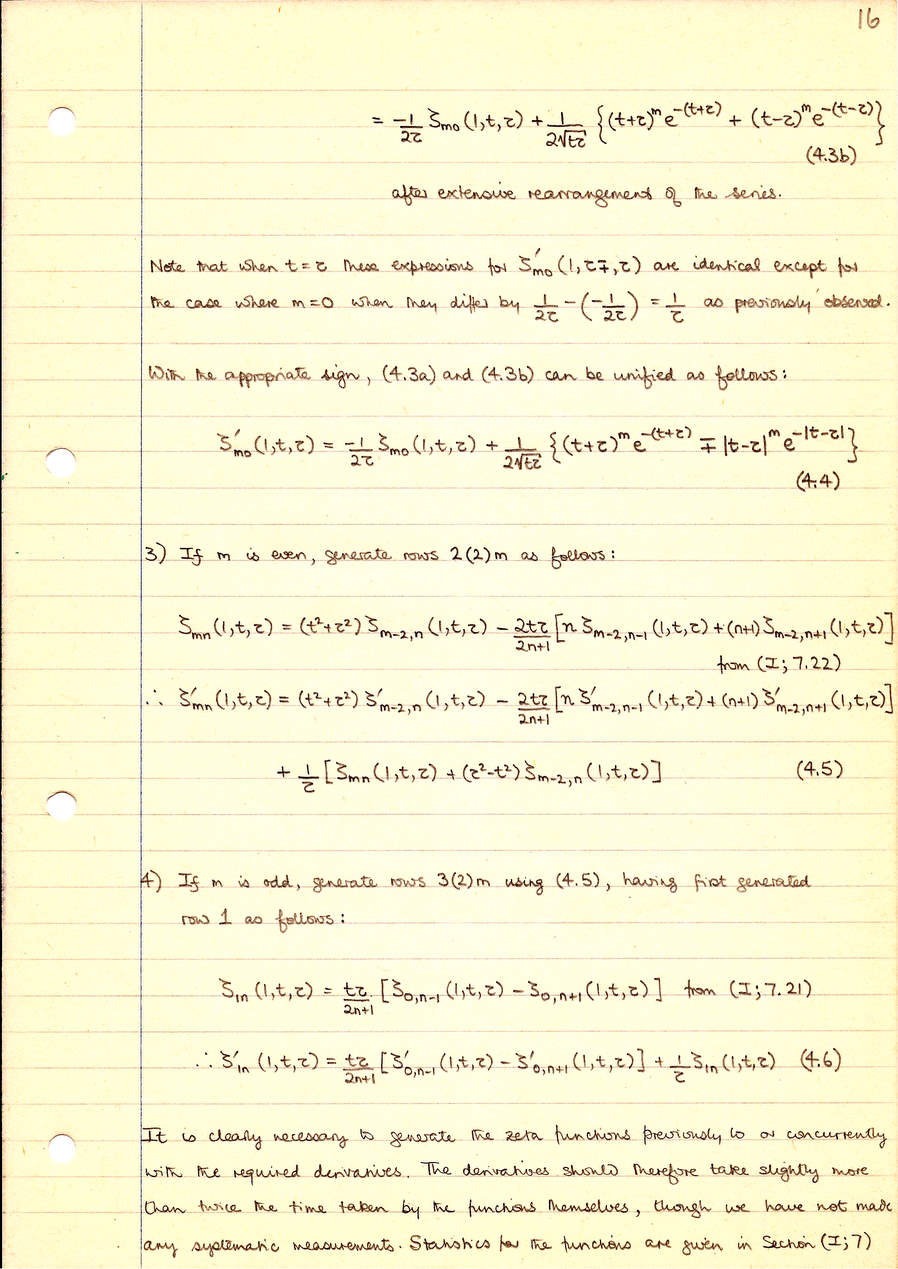 16
= -1/2τ ζm0(1,t,τ) + 1/2√tτ {(t+τ)^m e^-(t+τ) + (t-τ)^m e^-(t-τ)}
(4.3b)
after extensive rearrangement of the series.
Note that when t=τ these expressions for ζ'm0(1,τ∓,τ) are identical except for
the case where m=0 when they differ by 1/2τ - (-1/2τ) = 1/τ as previously observed.
With the appropriate sign, (4.3a) and (4.3b) can be unified as follows:
ζ'm0(1,t,τ) = -1/2τ ζm0(1,t,τ) + 1/2√tτ {(t+τ)^m e^-(t+τ) ∓ |t-τ|^m e^-|t-τ|}
(4.4)
3) If m is even, generate rows 2(2)m as follows:
ζmn(1,t,τ) = (t²+τ²) ζm-2,n(1,t,τ) - 2tτ/2n+1 [n ζm-2,n-1(1,t,τ) + (n+1) ζm-2,n+1(1,t,τ)]
from (I; 7.22)
∴ ζ'mn(1,t,τ) = (t²+τ²) ζ'm-2,n(1,t,τ) - 2tτ/2n+1 [n ζ'm-2,n-1(1,t,τ) + (n+1) ζ'm-2,n+1(1,t,τ)]
+ 1/τ [ζmn(1,t,τ) + (τ²-t²) ζm-2,n(1,t,τ)] (4.5)
4) If m is odd, generate rows 3(2)m using (4.5), having first generated
row 1 as follows:
ζ1n(1,t,τ) = tτ/2n+1 [ζ0,n-1(1,t,τ) - ζ0,n+1(1,t,τ)] from (I; 7.21)
∴ ζ'1n(1,t,τ) = tτ/2n+1 [ζ'0,n-1(1,t,τ) - ζ'0,n+1(1,t,τ)] + 1/τ ζ1n(1,t,τ) (4.6)
It is clearly necessary to generate the zeta functions previously to or concurrently
with the required derivatives. The derivatives should therefore take slightly more
than twice the time taken by the functions themselves, though we have not made
any systematic measurements. Statistics for the functions are given in Section (I; 7)